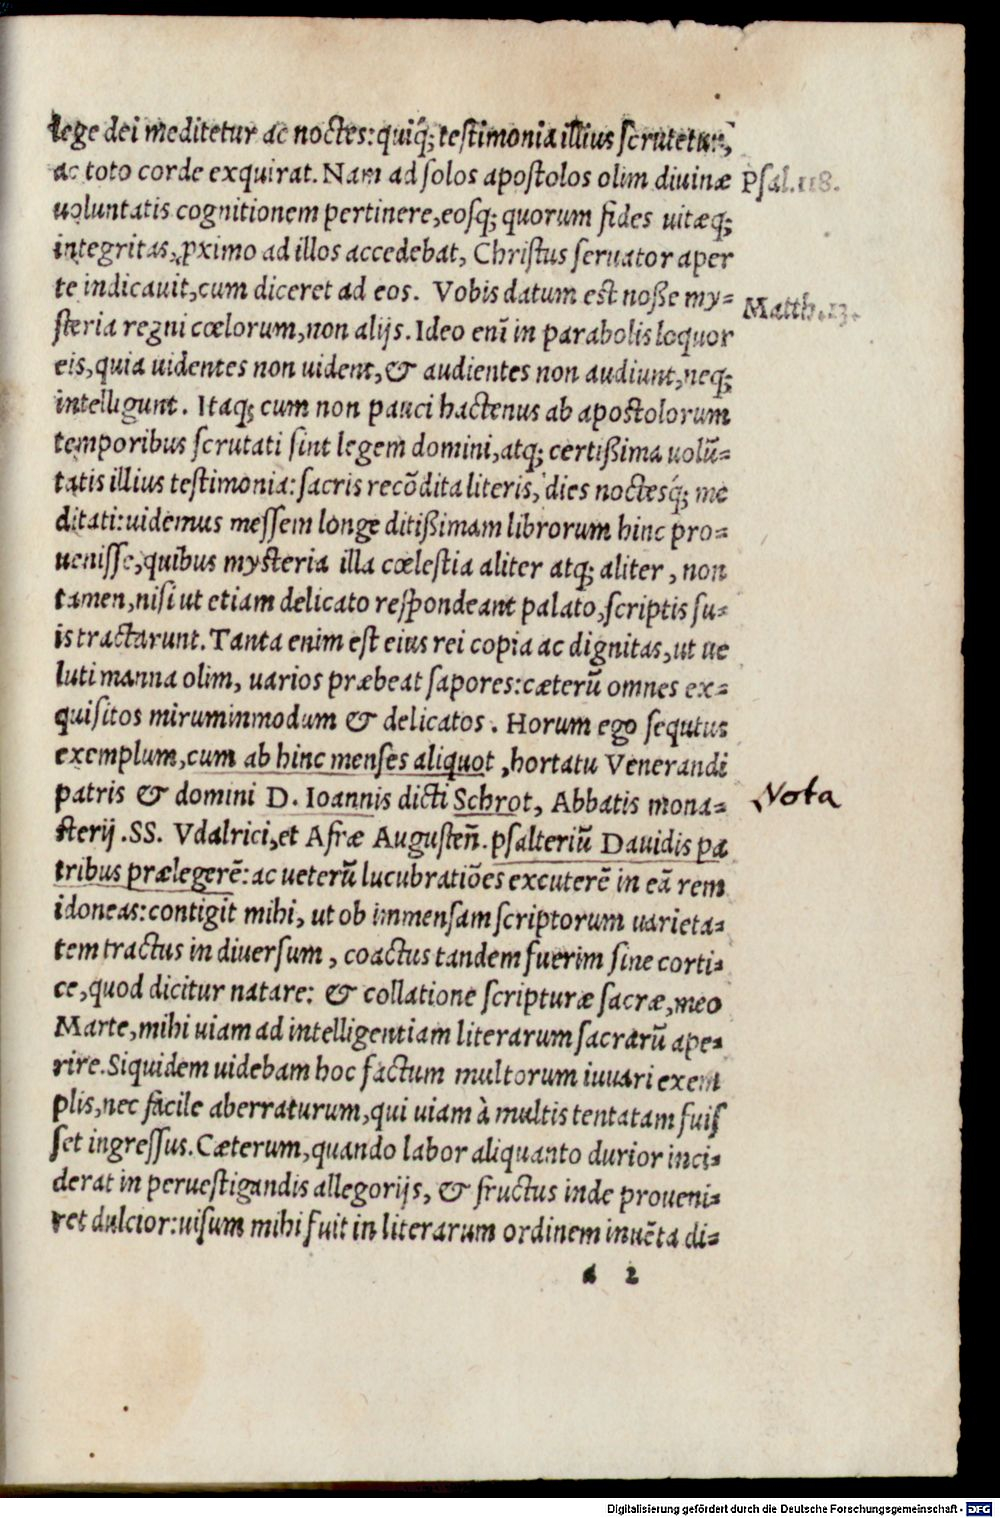 lege dei meditetur ac noctes: quiq́; testimonia illius scrutetur,
ac toto corde exquirat. Nam ad solos apostolos olim diuinæ
Psal. 118.
uoluntatis cognitionem pertinere, eosq; quorum fides uitæq;
integritas, ꝓximo ad illos accedebat, Christus seruator aper
te indicauit, cum diceret ad eos. Vobis datum est noße my=
Matth. 13.
steria regni cœlorum, non alijs. Ideo enī in parabolis loquor
eis, quia uidentes non uident, & audientes non audiunt, neq;
intelligunt. Itaq; cum non pauci hactenus ab apostolorum
temporibus scrutati sint legem domini, atq; certißima uolū=
tatis illius testimonia: sacris recōdita literis, dies noctesq́; me
ditati: uidemus messem longe ditißimam librorum hinc pro=
uenisse, quibus mysteria illa cœlestia aliter atq; aliter, non
tamen, nisi ut etiam delicato respondeant palato, scriptis su=
is tractarunt. Tanta enim est eius rei copia ac dignitas, ut ue
luti manna olim, uarios præbeat sapores: cæterū omnes ex=
quisitos miruminmodum & delicatos. Horum ego sequtus
exemplum, cum ab hinc menses aliquot, hortatu Venerandi
patris & domini D. Ioannis dicti Schrot, Abbatis mona=
Nota
sterij. SS. Vdalrici, et Afræ Augusteñ. psalteriū Dauidis pa
tribus prælegerē: ac ueterū lucubratiōes excuterē in eā rem
idoneas: contigit mihi, ut ob immensam scriptorum uarieta=
tem tractus in diuersum, coactus tandem fuerim sine corti=
ce, quod dicitur natare: & collatione scripturæ sacræ, meo
Marte, mihi uiam ad intelligentiam literarum sacrarū ape=
rire. Siquidem uidebam hoc factum multorum iuuari exem
plis, nec facile aberraturum, qui uiam à multis tentatam fuis
set ingressus. Cæterum, quando labor aliquanto durior inci=
derat in peruestigandis allegorijs, & fructus inde proueni=
ret dulcior: uisum mihi fuit in literarum ordinem inuēta di=
a 2
Digitalisierung gefördert durch die Deutsche Forschungsgemeinschaft - DFG